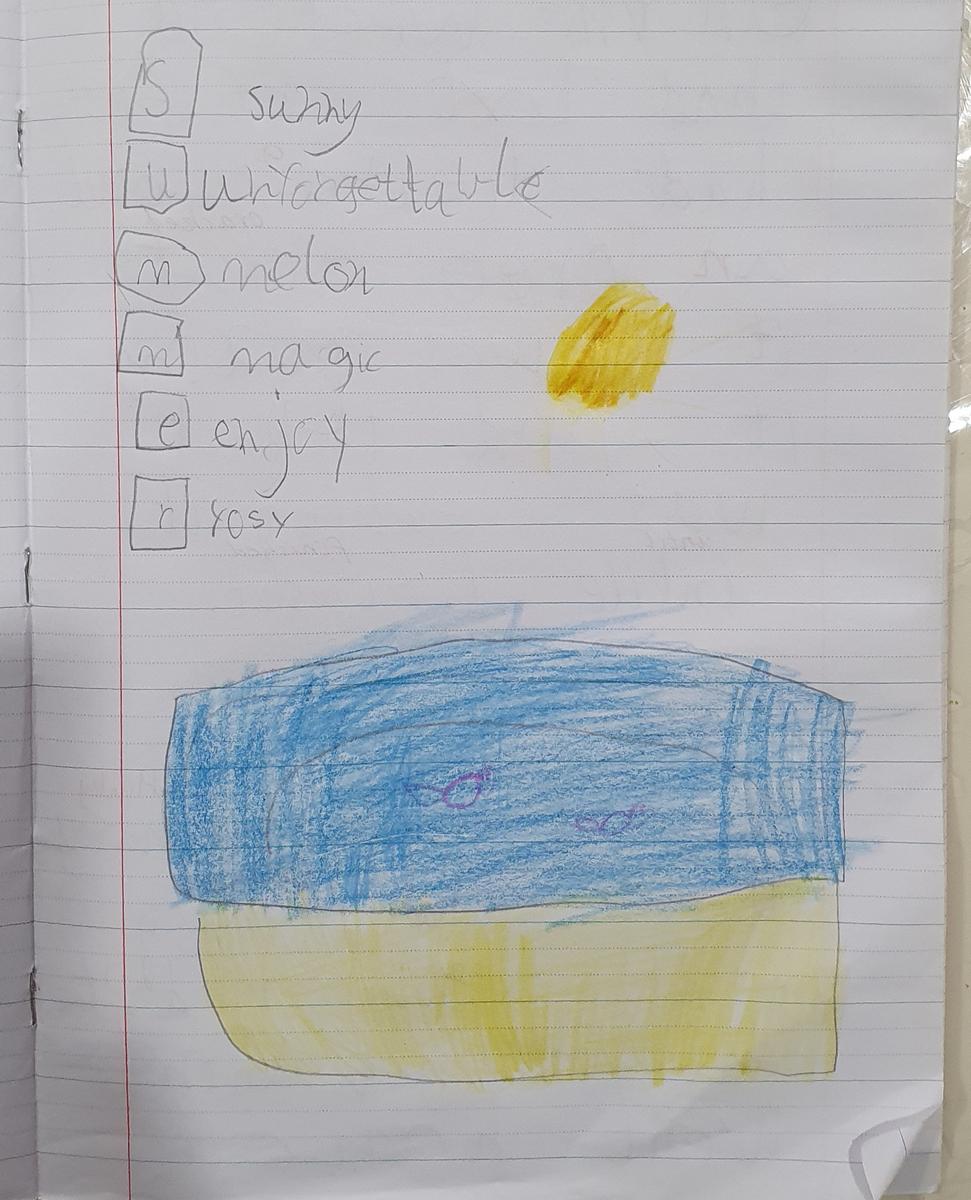 S sunny
U unforgettable
m melon
m magic
e enjoy
r rosy